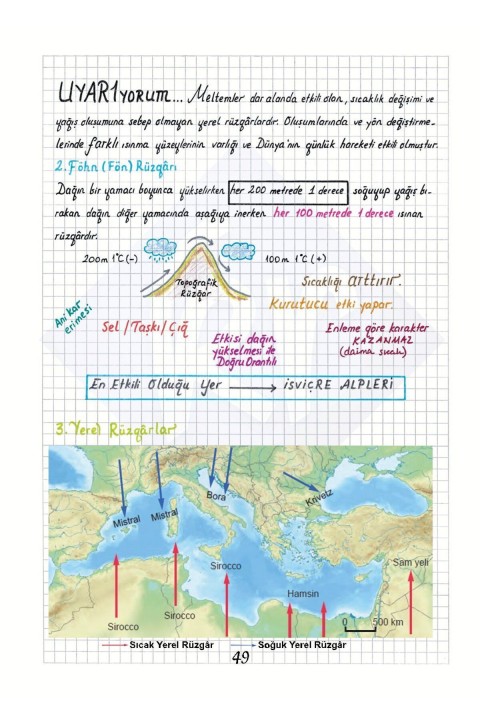 UYARIYORUM... Meltemler dar alanda etkili olan, sıcaklık değişimi ve
yağış oluşumuna sebep olmayan yerel rüzgârlardır. Oluşumlarında ve yön değiştirme-
lerinde farklı ısınma yüzeylerinin varlığı ve Dünya'nın günlük hareketi etkili olmuştur.
2. Föhn (Fön) Rüzgârı
Dağın bir yamacı boyunca yükselirken her 200 metrede 1 derece soğuyup yağış bı-
rakan dağın diğer yamacında aşağıya inerken her 100 metrede 1 derece ısınan
rüzgârdır.
200m 1°C (-)
100m 1°C (+)
Topografik
Rüzgar
Sıcaklığı arttırır.
Kurutucu etki yapar.
Ani kar
erimesi
Sel / Taşkı / Çığ
Etkisi dağın
yükselmesi ile
Doğru Orantılı
Enleme göre karakter
KAZANMAZ
(daima sıcak)
En Etkili Olduğu Yer → İSVİÇRE ALPLERİ
3. Yerel Rüzgârlar
Mistral
Mistral
Bora
Krivetz
Sirocco
Sam yeli
Hamsin
Sirocco
Sirocco
0 500 km
Sıcak Yerel Rüzgâr
Soğuk Yerel Rüzgâr
49